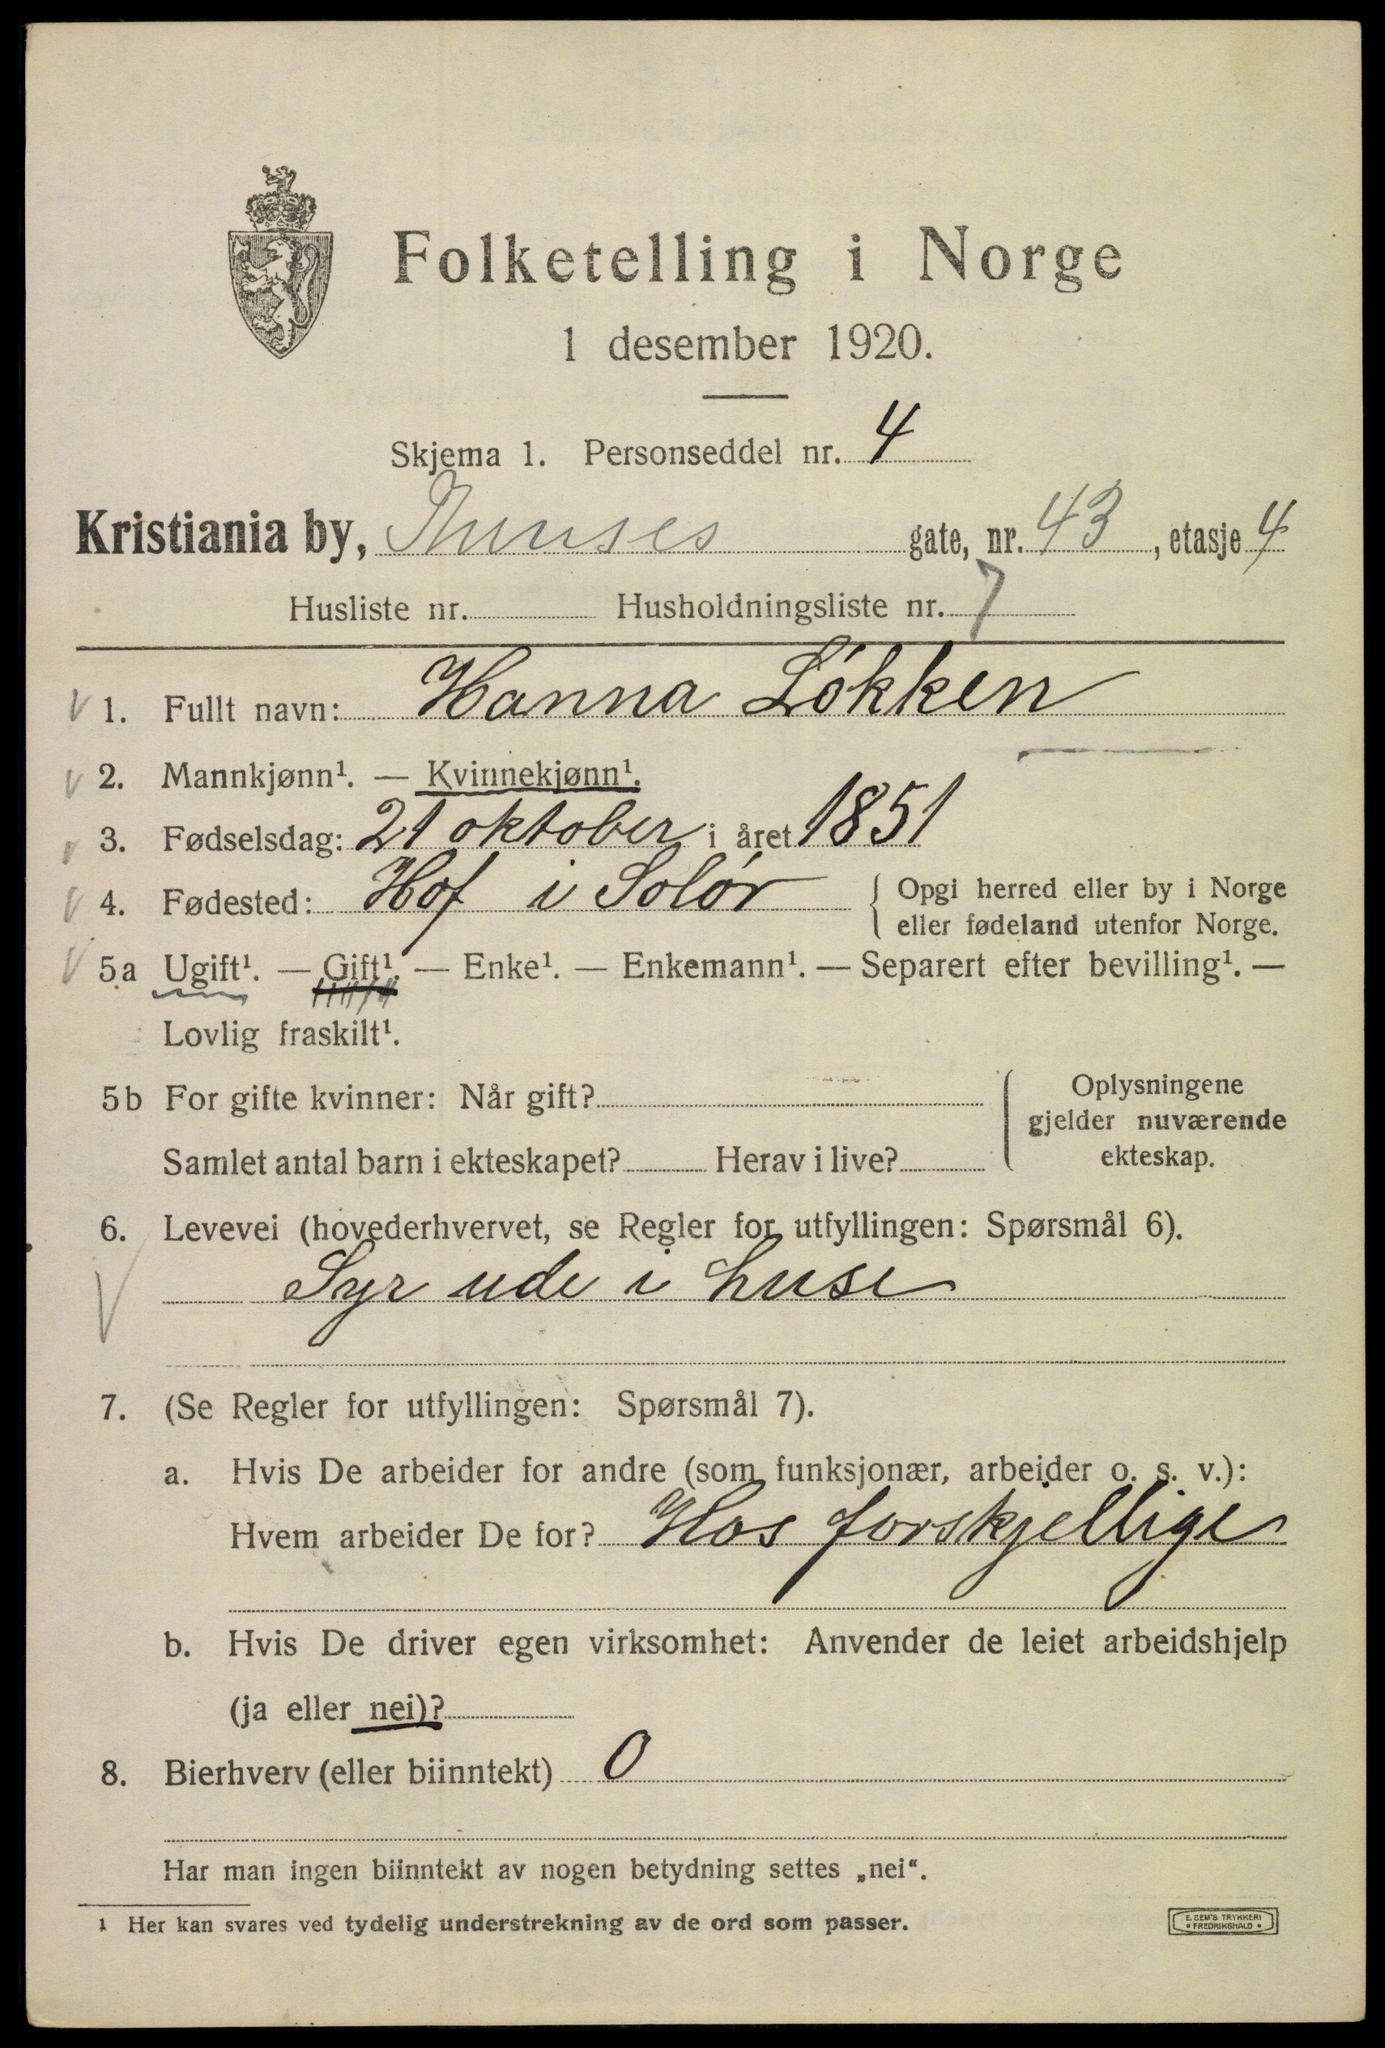 Folketelling i Norge
1 desember 1920.
Skjema 1. Personseddel nr. 4
Kristiania by, Thunses gate, nr. 43, etasje 4
Husliste nr. Husholdningsliste nr. 7
1. Fullt navn: Hanna Løkken
2. Mannkjønn¹. — Kvinnekjønn¹.
3. Fødselsdag: 21 oktober i året 1851
4. Fødested: Hof i Solør { Opgi herred eller by i Norge
eller fødeland utenfor Norge.
5a Ugift¹. — Gift¹. — Enke¹. — Enkemann¹. — Separert efter bevilling¹. —
Lovlig fraskilt¹.
5b For gifte kvinner: Når gift?
Samlet antal barn i ekteskapet? Herav i live?
Oplysningene
gjelder nuværende
ekteskap.
6. Levevei (hovederhvervet, se Regler for utfyllingen: Spørsmål 6).
Syr ude i huse
7. (Se Regler for utfyllingen: Spørsmål 7).
a. Hvis De arbeider for andre (som funksjonær, arbeider o. s. v.):
Hvem arbeider De for? Hos forskjellige
b. Hvis De driver egen virksomhet: Anvender de leiet arbeidshjelp
(ja eller nei)?
8. Bierhverv (eller biinntekt) 0
Har man ingen biinntekt av nogen betydning settes „nei“.
1 Her kan svares ved tydelig understrekning av de ord som passer.
E. SEM'S TRYKKERI
* FREDRIKSHALD *